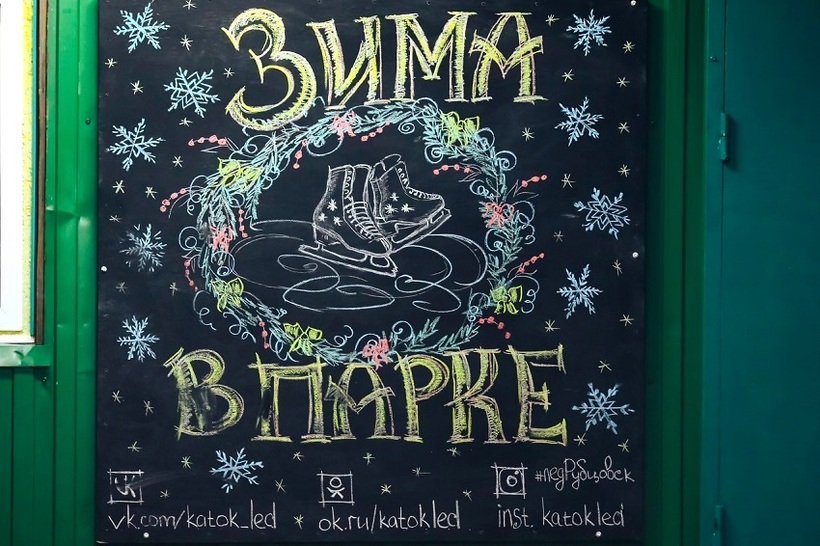 ЗИМА
В ПАРКЕ
#ледРубцовск
vk.com/katok_led
ok.ru/katokled
inst. katokled